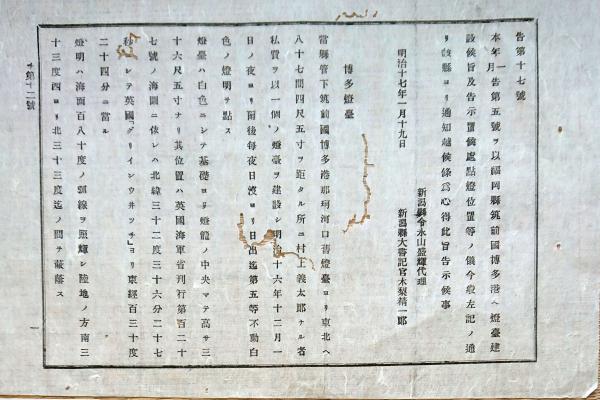 告第十七號
本年一月告第五號ヲ以福岡縣筑前國博多港ヘ燈臺建
設候旨及告示置候處點燈位置等ノ儀今般左記ノ通
リ該縣ヨリ通知越候條爲心得此旨告示候事
明治十七年一月十九日
新潟縣令永山盛輝代理
新潟縣大書記官木梨精一郎
博多燈臺
當縣管下筑前國博多港那珂河口舊燈臺ヨリ東北ヘ
八十七間四尺五寸ヲ距タル所ニ村上義太郎ナル者
私費ヲ以一個ノ燈臺ヲ建設シ明治十六年十二月一
日ノ夜ヨリ爾後每夜日沒ヨリ日出迄第五等不動白
色ノ燈明ヲ點ス
燈臺ハ白色ニシテ基礎ヨリ燈籠ノ中央マテ高サ三
十六尺五寸ナリ其位置ハ英國海軍省刊行第百二十
七號ノ海圖ニ依レハ北緯三十三度三十六分二十七
秒ニシテ英國「グリインウ井ツチ」ヨリ東經百三十度
二十四分ニ當ル
燈明ハ海面百八十度ノ弧線ヲ照輝シ陸地ノ方南三
十三度西ヨリ北三十三度迄ノ間ヲ蔽蔭ス
第十二號
一